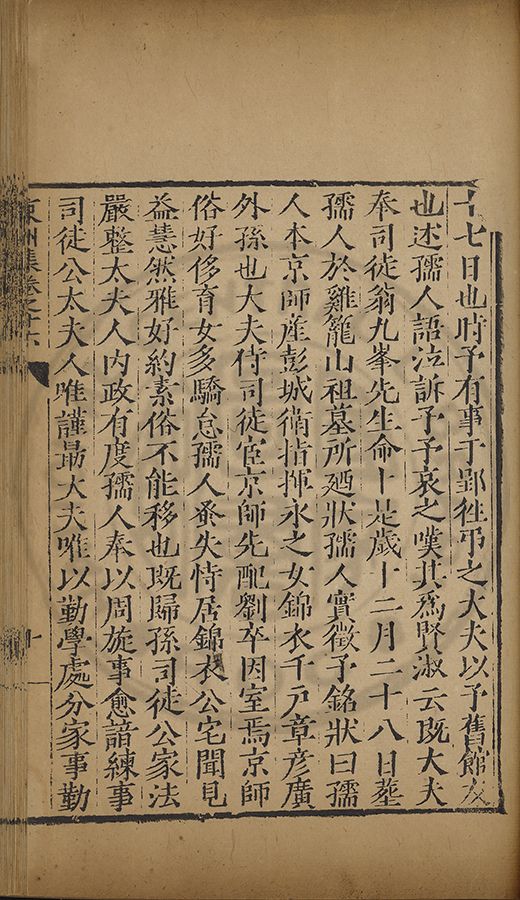 十七日也時予有事于郢徃弔之大夫以予舊館友
也述孺人語泣訴予予哀之嘆其爲賢淑云既大夫
奉司徒翁九峯先生命卜是歲十二月二十八日葬
孺人於雞籠山祖墓所廼狀孺人實徵予銘狀曰孺
人本京師產彭城衛指揮永之女錦衣千戸章彥廣
外孫也大夫侍司徒宦京師先配劉卒因室焉京師
俗好侈育女多驕怠孺人蚤失恃居錦衣公宅聞見
益慧然雅好約素俗不能移也既歸孫司徒公家法
嚴整太夫人内政有度孺人奉以周旋事愈諳練事
司徒公太夫人唯謹最大夫唯以勤學處分家事勤
東洲集卷之十六
十